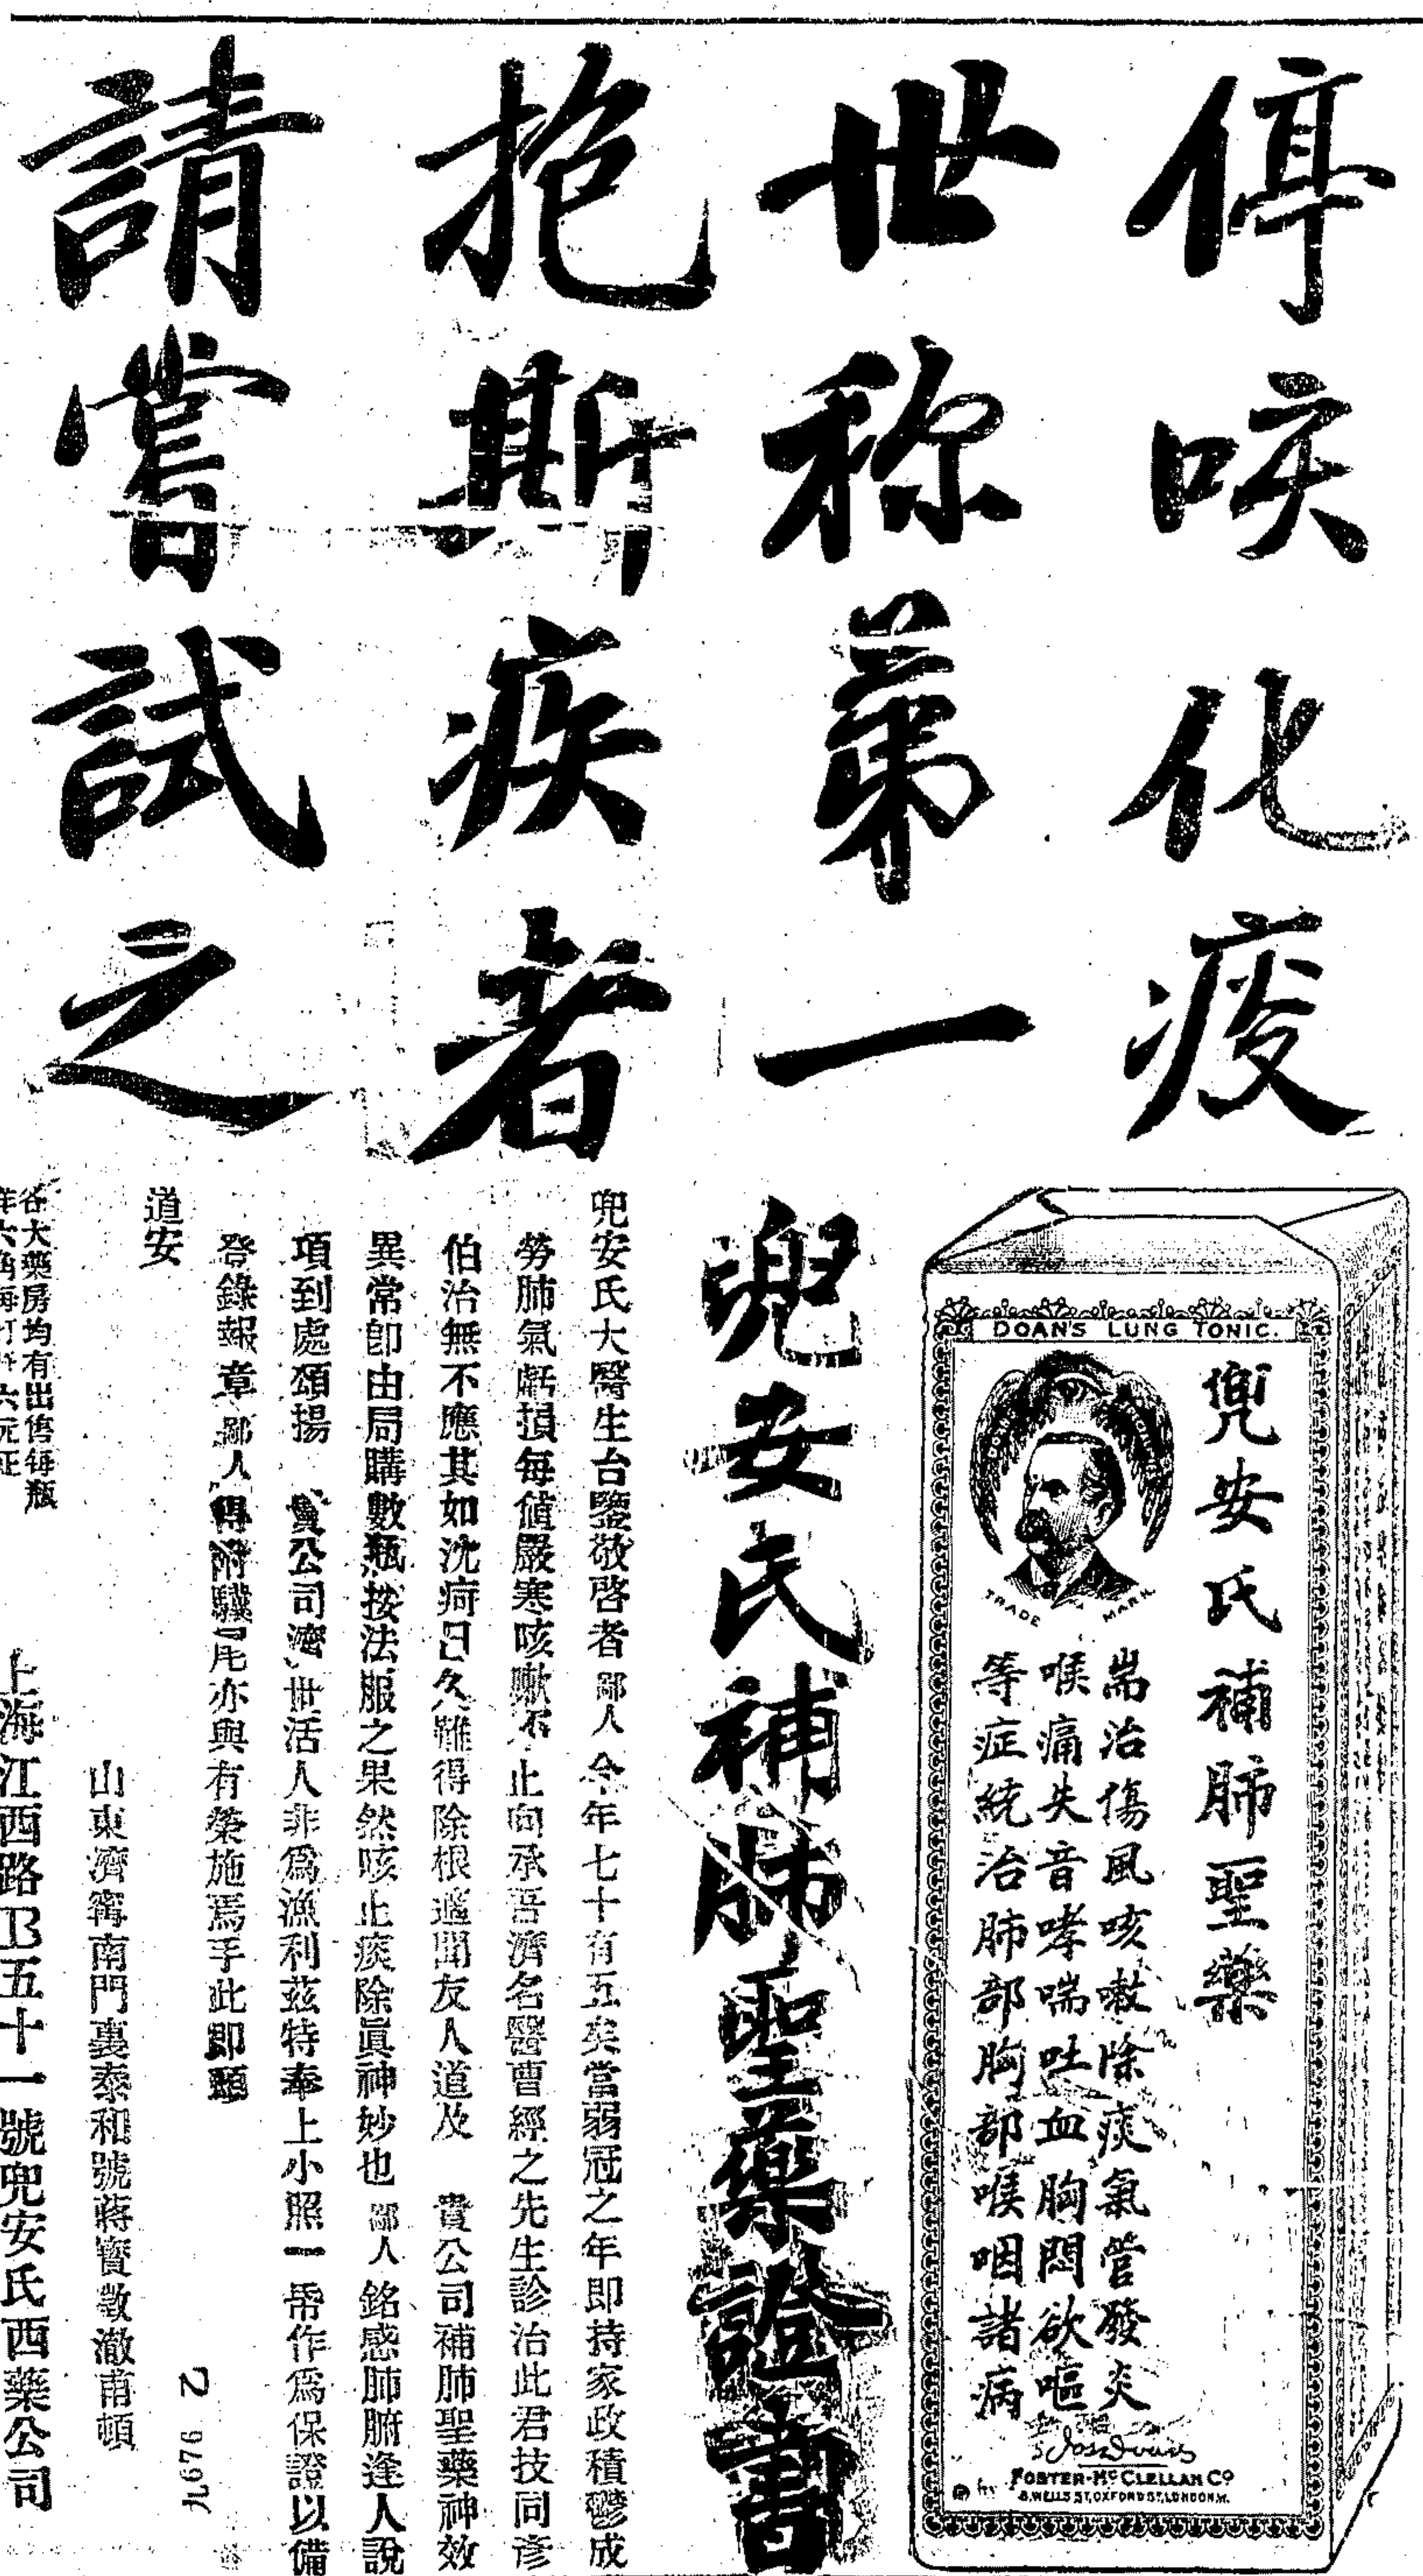 停咳化痰
世称第一
抱斯疾者
請嘗試之
DOAN'S LUNG TONIC.
TRADE MARK
兜安氏補肺聖藥
耑治傷風咳嗽除痰氣管發炎
喉痛失音哮喘吐血胸悶欲嘔
等症統治肺部胸部喉咽諸病
FOSTER-McCLELLAN Co
8, WELLS ST, OXFORD ST, LONDON, W.
兜安氏補肺聖藥證書
兜安氏大醫生台鑒敬啓者鄙人今年七十有五矣當弱冠之年即持家政積鬱成
勞肺氣虧損每值嚴寒咳嗽不止向承吾濟名醫曹經之先生診治此君技同彥
伯治無不應其如沈疴日久難得除根適聞友人道及 貴公司補肺聖藥神效
異常卽由局購數瓶按法服之果然咳止痰除眞神妙也鄙人銘感肺腑逢人說
項到處頌揚 貴公司濟世活人非爲漁利茲特奉上小照一帋作爲保證以備
登錄報章鄙人得附驥尾亦與有榮施焉手此即頌
道安
山東濟寗南門裏泰和號蔣寶敬澈甫頓
各大藥房均有出售每瓶
洋六角每打 六元正
上海江西路B五十一號兜安氏西藥公司
2
九676